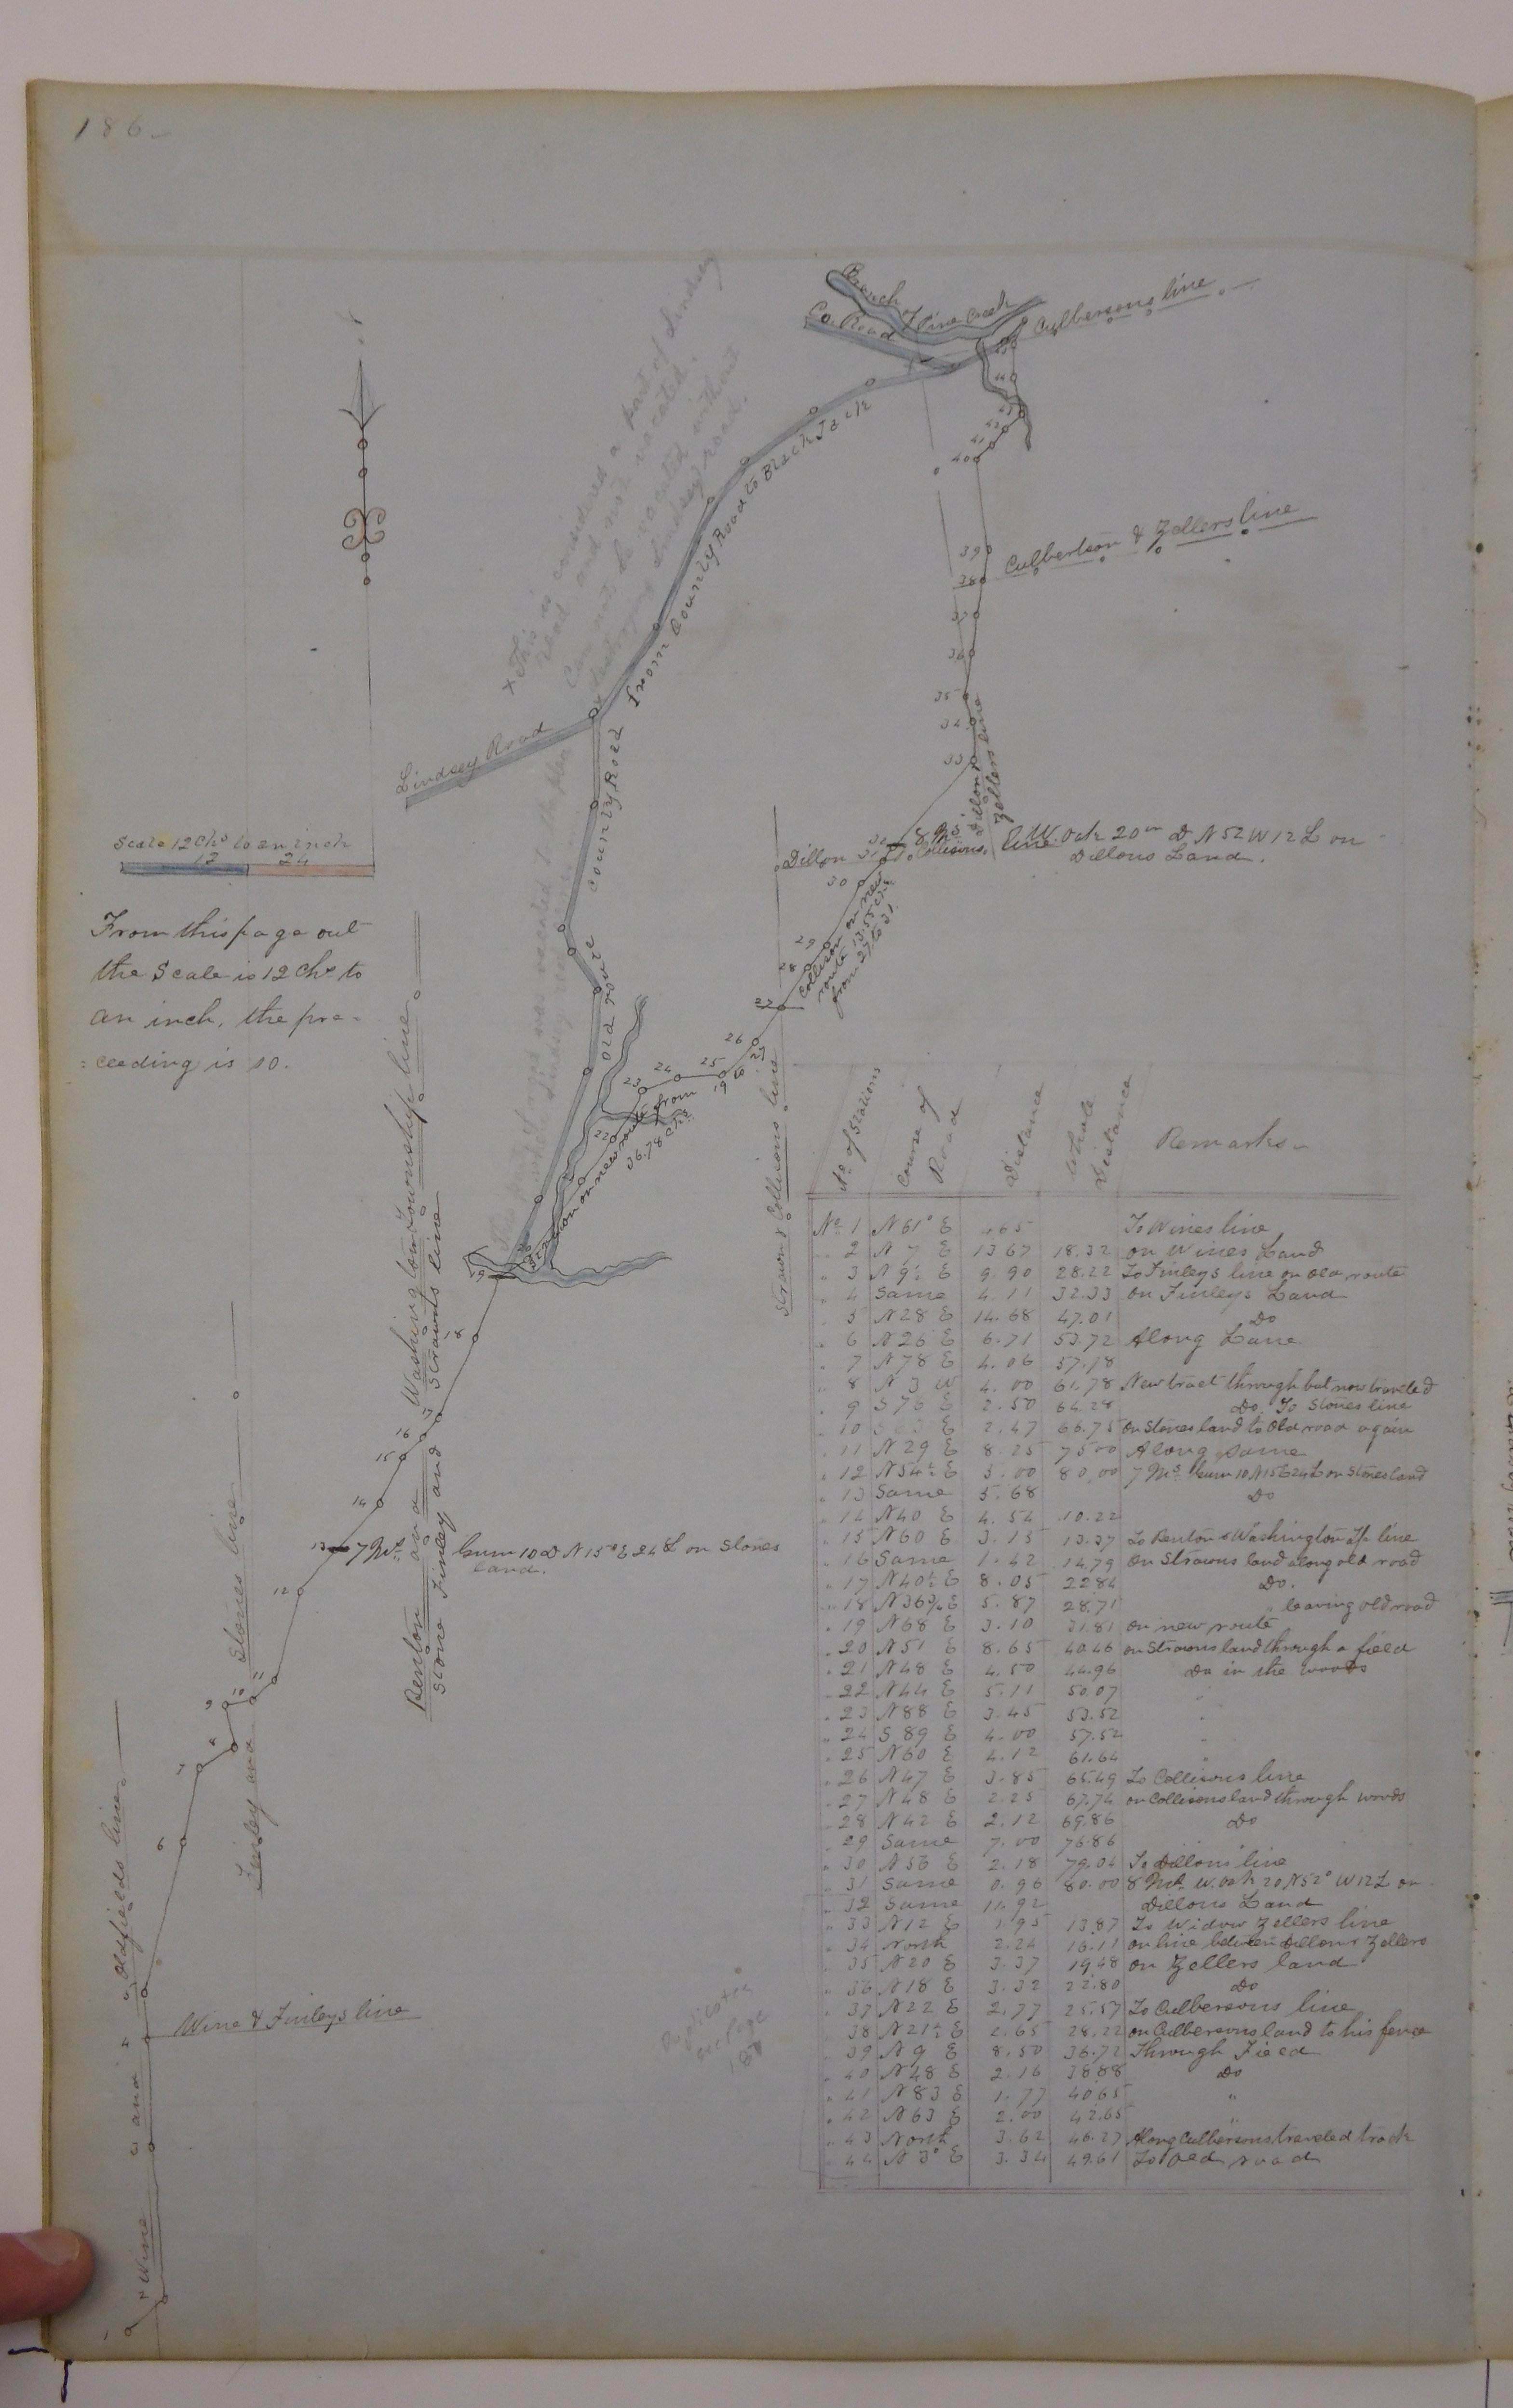 186-
Branch of Pine Creek
Co. Road
Culbersons line
x This is considered a part of Lindsey
road and not vacated.
Can not be vacated without
destroying Lindsey road.
From County Road to Black Jack
Culbertson & Zellers line
Lindsey Road
County Road
old route
Scale 12 Chs to an inch
12 24
From this page out
the Scale is 12 Chs to
an inch, the pre=
=ceeding is 10.
Dillon & Collisons line
8 Ms W. Oak 20 in D N 52 W 12 L on
Dillons Land.
Dillon & Zellers line
Collison on new
route 13.55 Chs
from 27 to 31
Strawn on new route from
19 to 27
36.78 Chs
Strawn & Collisons line
Benton and Washington Township line
Stone Finley and Strawns line
Finley and Stones line
7 Mls Gum 10 D N 15° E 24 L on Stones
land.
Wine and Oldfields line
Wine & Finleys line
see Page
187
No of Stations
Course of Road
Distance
Whole Distance
Remarks-
No 1 N 61° E .65 To Wines line
" 2 N 7 E 13 67 18.32 on Wines Land
" 3 N 9½ E 9.90 28.22 To Finleys line on old route
" 4 Same 4.11 32.33 on Finleys Land
5 N 28 E 14.68 47.01 Do
" 6 N 26 E 6.71 53.72 Along Lane
" 7 N 78 E 4.06 57.78
" 8 N 3 W 4.00 61.78 New tract through but now traveled
" 9 S 76 E 2.50 64.28 Do. To Stones line
" 10 E 2.47 66.75 on Stones land to Old road again
" 11 N 29 E 8.25 75 00 Along Same
" 12 N 54½ E 5.00 80,00 7 Ms Gum 10 N 15 E 24 L on Stones land
" 13 Same 5.68 Do
" 14 N 40 E 4.54 10.22
" 15 N 60 E 3.15 13.37 To Benton & Washington Tp line
" 16 Same 1.42 14.79 on Strawns land along old road
" 17 N 40½ E 8.05 22 84 Do.
" 18 N 36¾ E 5.87 28.71 " leaving old road
" 19 N 68 E 3.10 31.81 on new route
" 20 N 51 E 8.65 40.46 on Strawns land through a field
" 21 N 48 E 4.50 44.96 Do in the woods
" 22 N 44 E 5.11 50.07 "
" 23 N 88 E 3.45 53.52 "
" 24 S 89 E 4.00 57.52 "
" 25 N 60 E 4.12 61.64 "
" 26 N 47 E 3.85 65.49 To Collisons line
" 27 N 48 E 2.25 67.74 on Collisons land through woods
" 28 N 42 E 2.12 69.86 Do
" 29 Same 7.00 76.86 "
" 30 N 56 E 2.18 79.04 To Dillons line
" 31 Same 0.96 80.00 8 Mls W. Oak 20 N 52° W 12 L on
" 32 Same 11.92 Dillons Land
" 33 N 12 E 1.95 13.87 To Widow Zellers line
" 34 North 2.24 16.11 on line between Dillon & Zellers
" 35 N 20 E 3.37 19.48 on Zellers land
" 36 N 18 E 3.32 22.80 Do
" 37 N 22 E 2.77 25.57 To Culbersons line
" 38 N 21½ E 2.65 28.22 on Culbersons land to his fence
" 39 N 9 E 8.50 36.72 Through Field
" 40 N 48 E 2.16 38 88 Do
" 41 N 83 E 1.77 40 65 "
" 42 N 63 E 2.00 42.65 "
" 43 North 3.62 46.27 Along Culbersons traveled track
" 44 N 3° E 3.34 49.61 To Old road